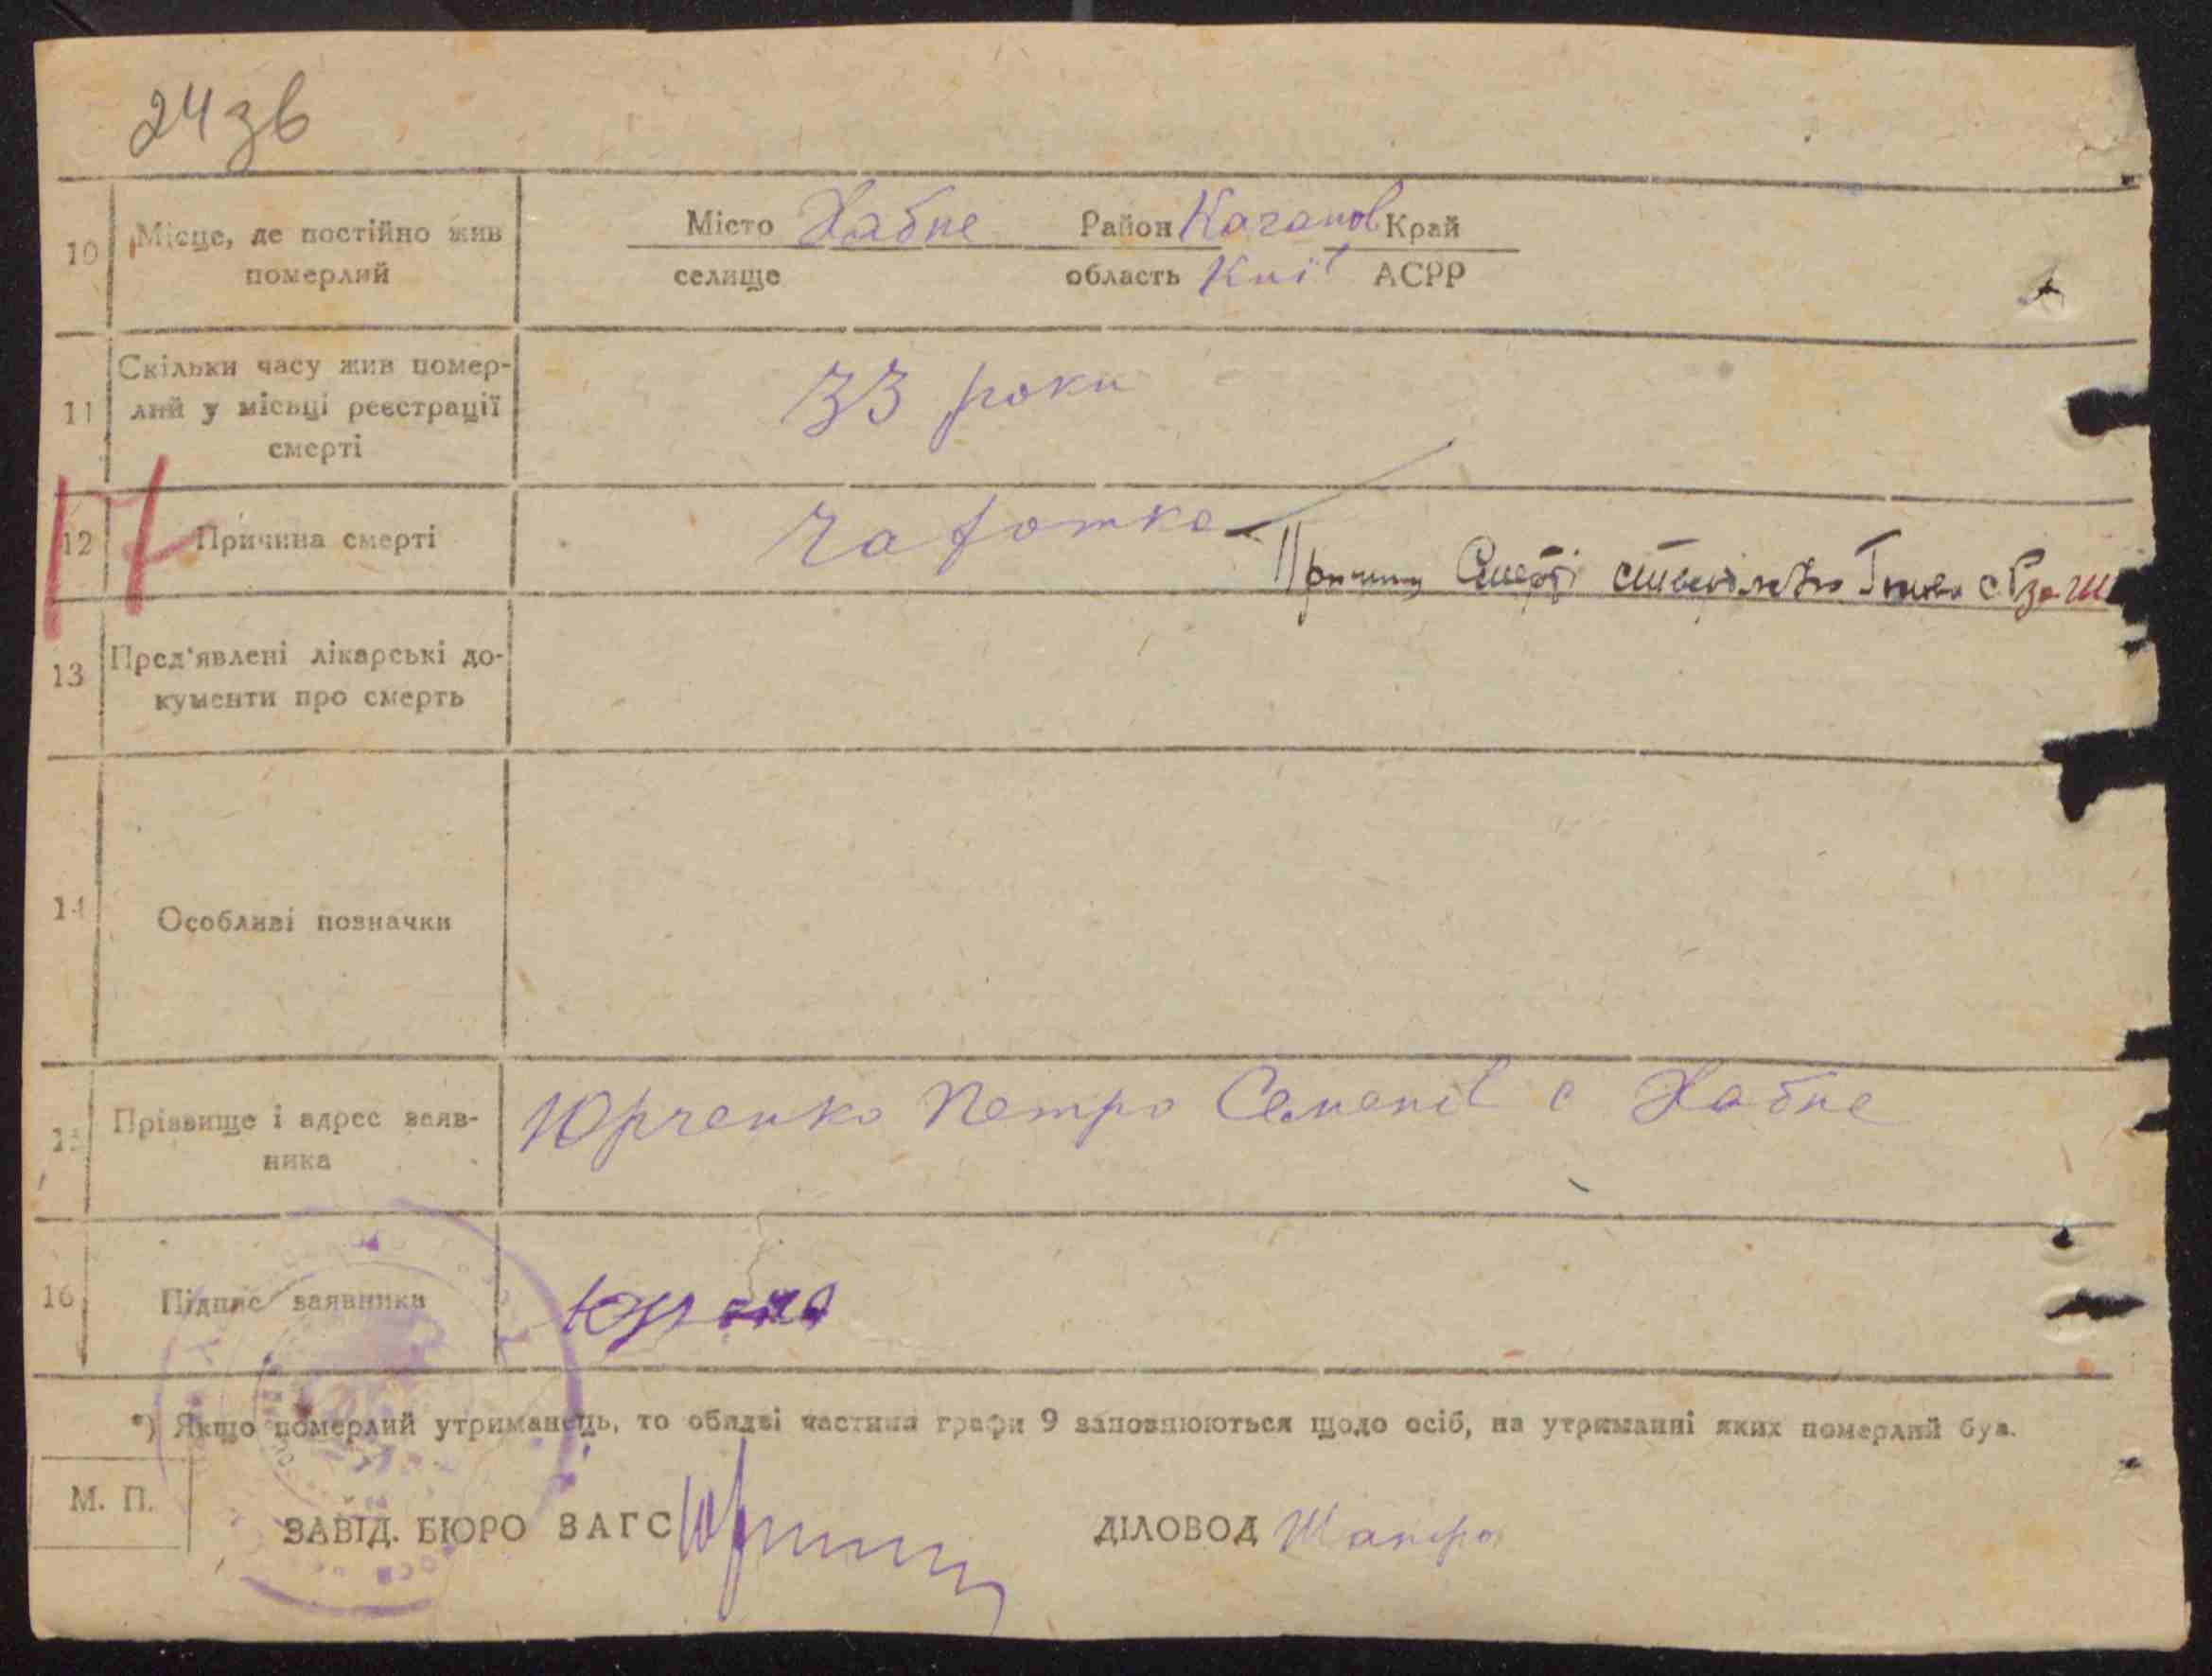 24зв
10 Місце, де постійно жив померлий
Місто Хабне Район Каганов Край
селище область Київ АСРР
11 Скільки часу жив помер-
лий у місьці реєстрації
смерті
33 роки
12 Причина смерті
Чахотка
Причину Смерті
13 Пред'явлені лікарські до-
кументи про смерть
14 Особливі позначки
15 Прізвище і адрес заяв-
ника
Юрченко Петро Семенів с Хабне
16 Підпис заявника
*) Якщо померлий утриманець, то обидві частини графи 9 заповнюються щодо осіб, на утриманні яких померлий був.
М. П.
ЗАВІД. БЮРО ЗАГС
ДІЛОВОД Шапіро